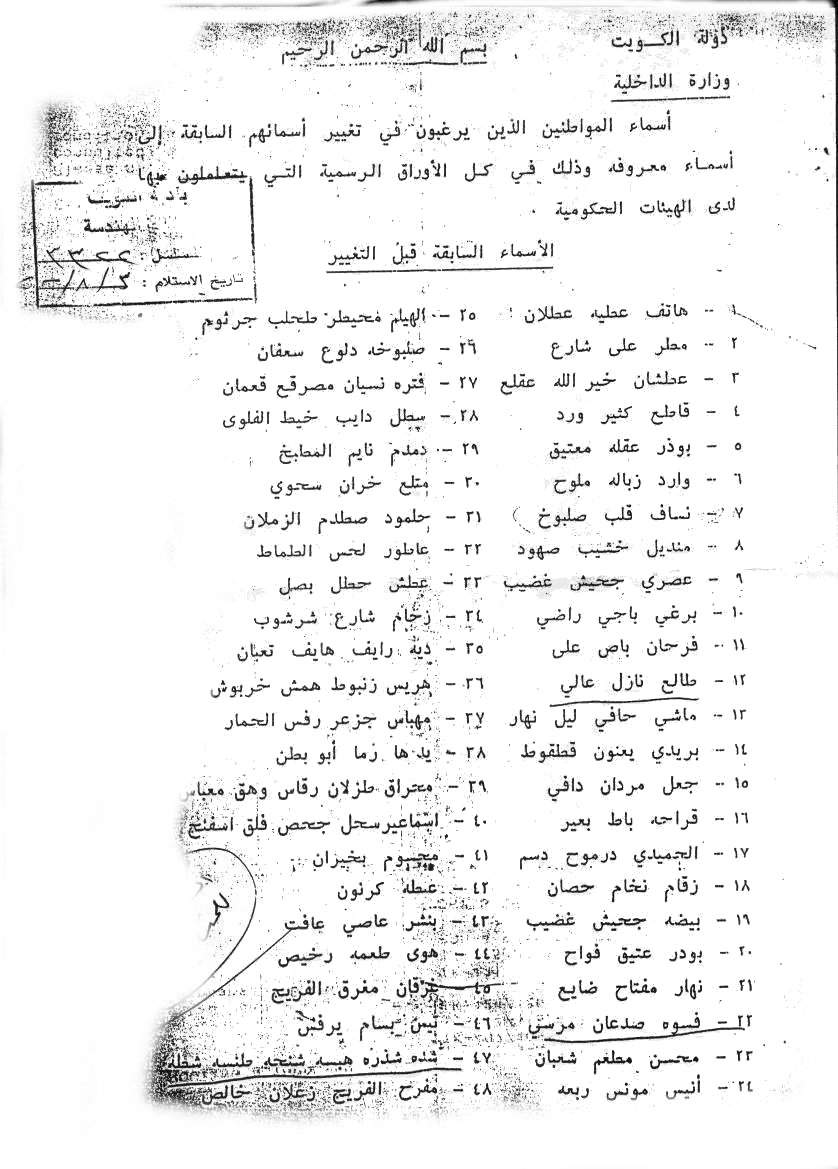 دولة الكويت
بسم الله الرحمن الرحيم
وزارة الداخلية
أسماء المواطنين الذين يرغبون في تغيير أسمائهم السابقة إلى
أسماء معروفه وذلك في كل الأوراق الرسمية التي يتعلملون بها
لدى الهيئات الحكومية .
الهندسة
مسلسل : ٣٣٢٢
تاريخ الاستلام : ٣/٨/
الأسماء السابقة قبل التغيير
١ - هاتف عطيه عطلان
٢ - مطر على شارع
٣ - عطشان خير الله عقلع
٤ - قاطع كثير ورد
٥ - بوذر عقله معتيق
٦ - وارد زباله ملوح
٧ - نساف قلب صلبوخ
٨ - منديل خشيب صهود
٩ - عصري جحيش غضيب
١٠ - برغي باجي راضي
١١ - فرحان باص على
١٢ - طالع نازل عالي
١٣ - ماشي حافي ليل نهار
١٤ - بريدي يعنون قطقوط
١٥ - جعل مردان دافي
١٦ - قراحه باط بعير
١٧ - الجميدي درموح دسم
١٨ - زقام نخام حصان
١٩ - بيضه جحيش غضيب
٢٠ - بودر عتيق فواح
٢١ - نهار مفتاح ضايع
٢٢ - فسوه صدعان مرسي
٢٣ - محسن مطعم شعبان
٢٤ - أنيس مونس ربعه
٢٥ - الهيلم محيطر طحلب جرثوم
٢٦ - صلبوخه دلوع سعفان
٢٧ - فتره نسيان مصرقع قعمان
٢٨ - سطل دايب خيط الفلوى
٢٩ - دمدم نايم المطبخ
٣٠ - متلع خران سحوي
٣١ - جلمود صطدم الزملان
٣٢ - عاطور لحس الطماط
٣٣ - عطش حطل بصل
٣٤ - زخام شارع شرشوب
٣٥ - ديه رايف هايف تعبان
٣٦ - هريس زنبوط همش خربوش
٣٧ - مهباس جزعر رفس الحمار
٣٨ - يد ها رما أبو بطن
٣٩ - محراق طزلان رقاس وهق معباس
٤٠ - اسماعيرسحل جحص فلق اسفنج
٤١ - محسوم بخيزان
٤٢ - عنطه كرنون
٤٣ - بنشر عاصي عافت
٤٤ - هوى طعمه رخيص
٤٥ - غرقان مغرق الفريج
٤٦ - نيس بسام يرفس
٤٧ - شده شذره هبسه شنحه طنسه شطه
٤٨ - مفرح الفريج زعلان خالص